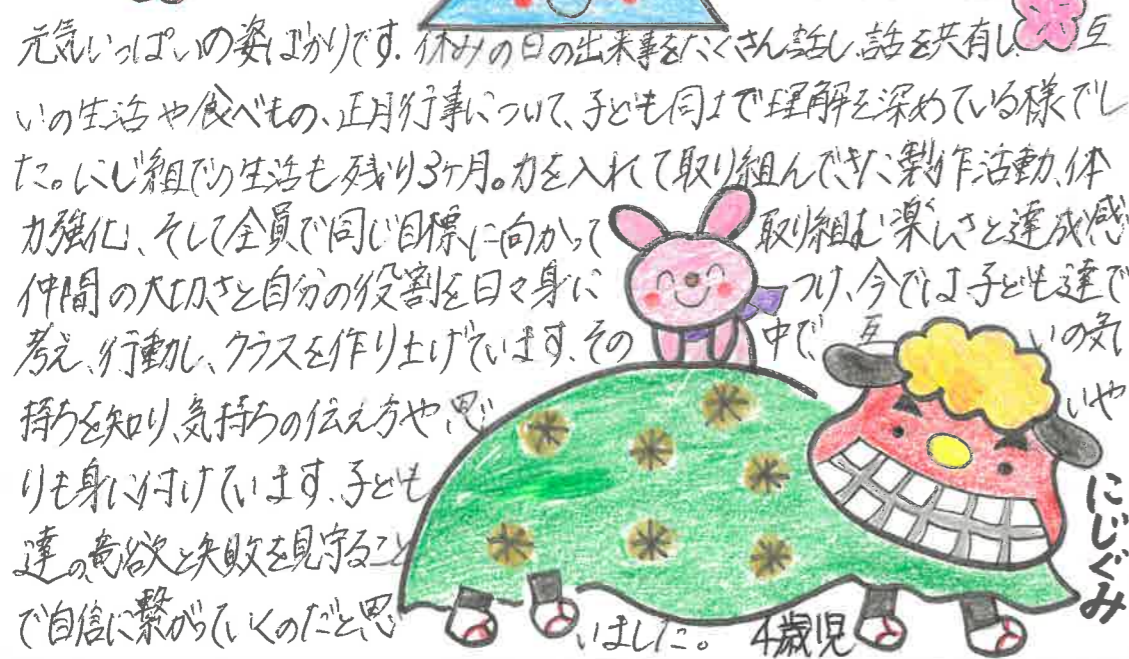 元気いっぱいの姿ばかりです。休みの日の出来事をたくさん話し、話を共有し互
いの生活や食べもの、正月行事について、子ども同士で理解を深めている様でし
た。にじ組での生活も残り3ヶ月。力を入れて取り組んできた製作活動、体
力強化、そして全員で同じ目標に向かって取り組む楽しさと達成感
仲間の大切さと自分の役割を日々身につけ、今では子ども達で
考え、行動し、クラスを作り上げています。その中で、互いの気
持ちを知り、気持ちの伝え方や、思いや
りも身に付けています。子ども
達の意欲と失敗を見守ること
で自信に繋がっていくのだと思いました。 4歳児
にじぐみ